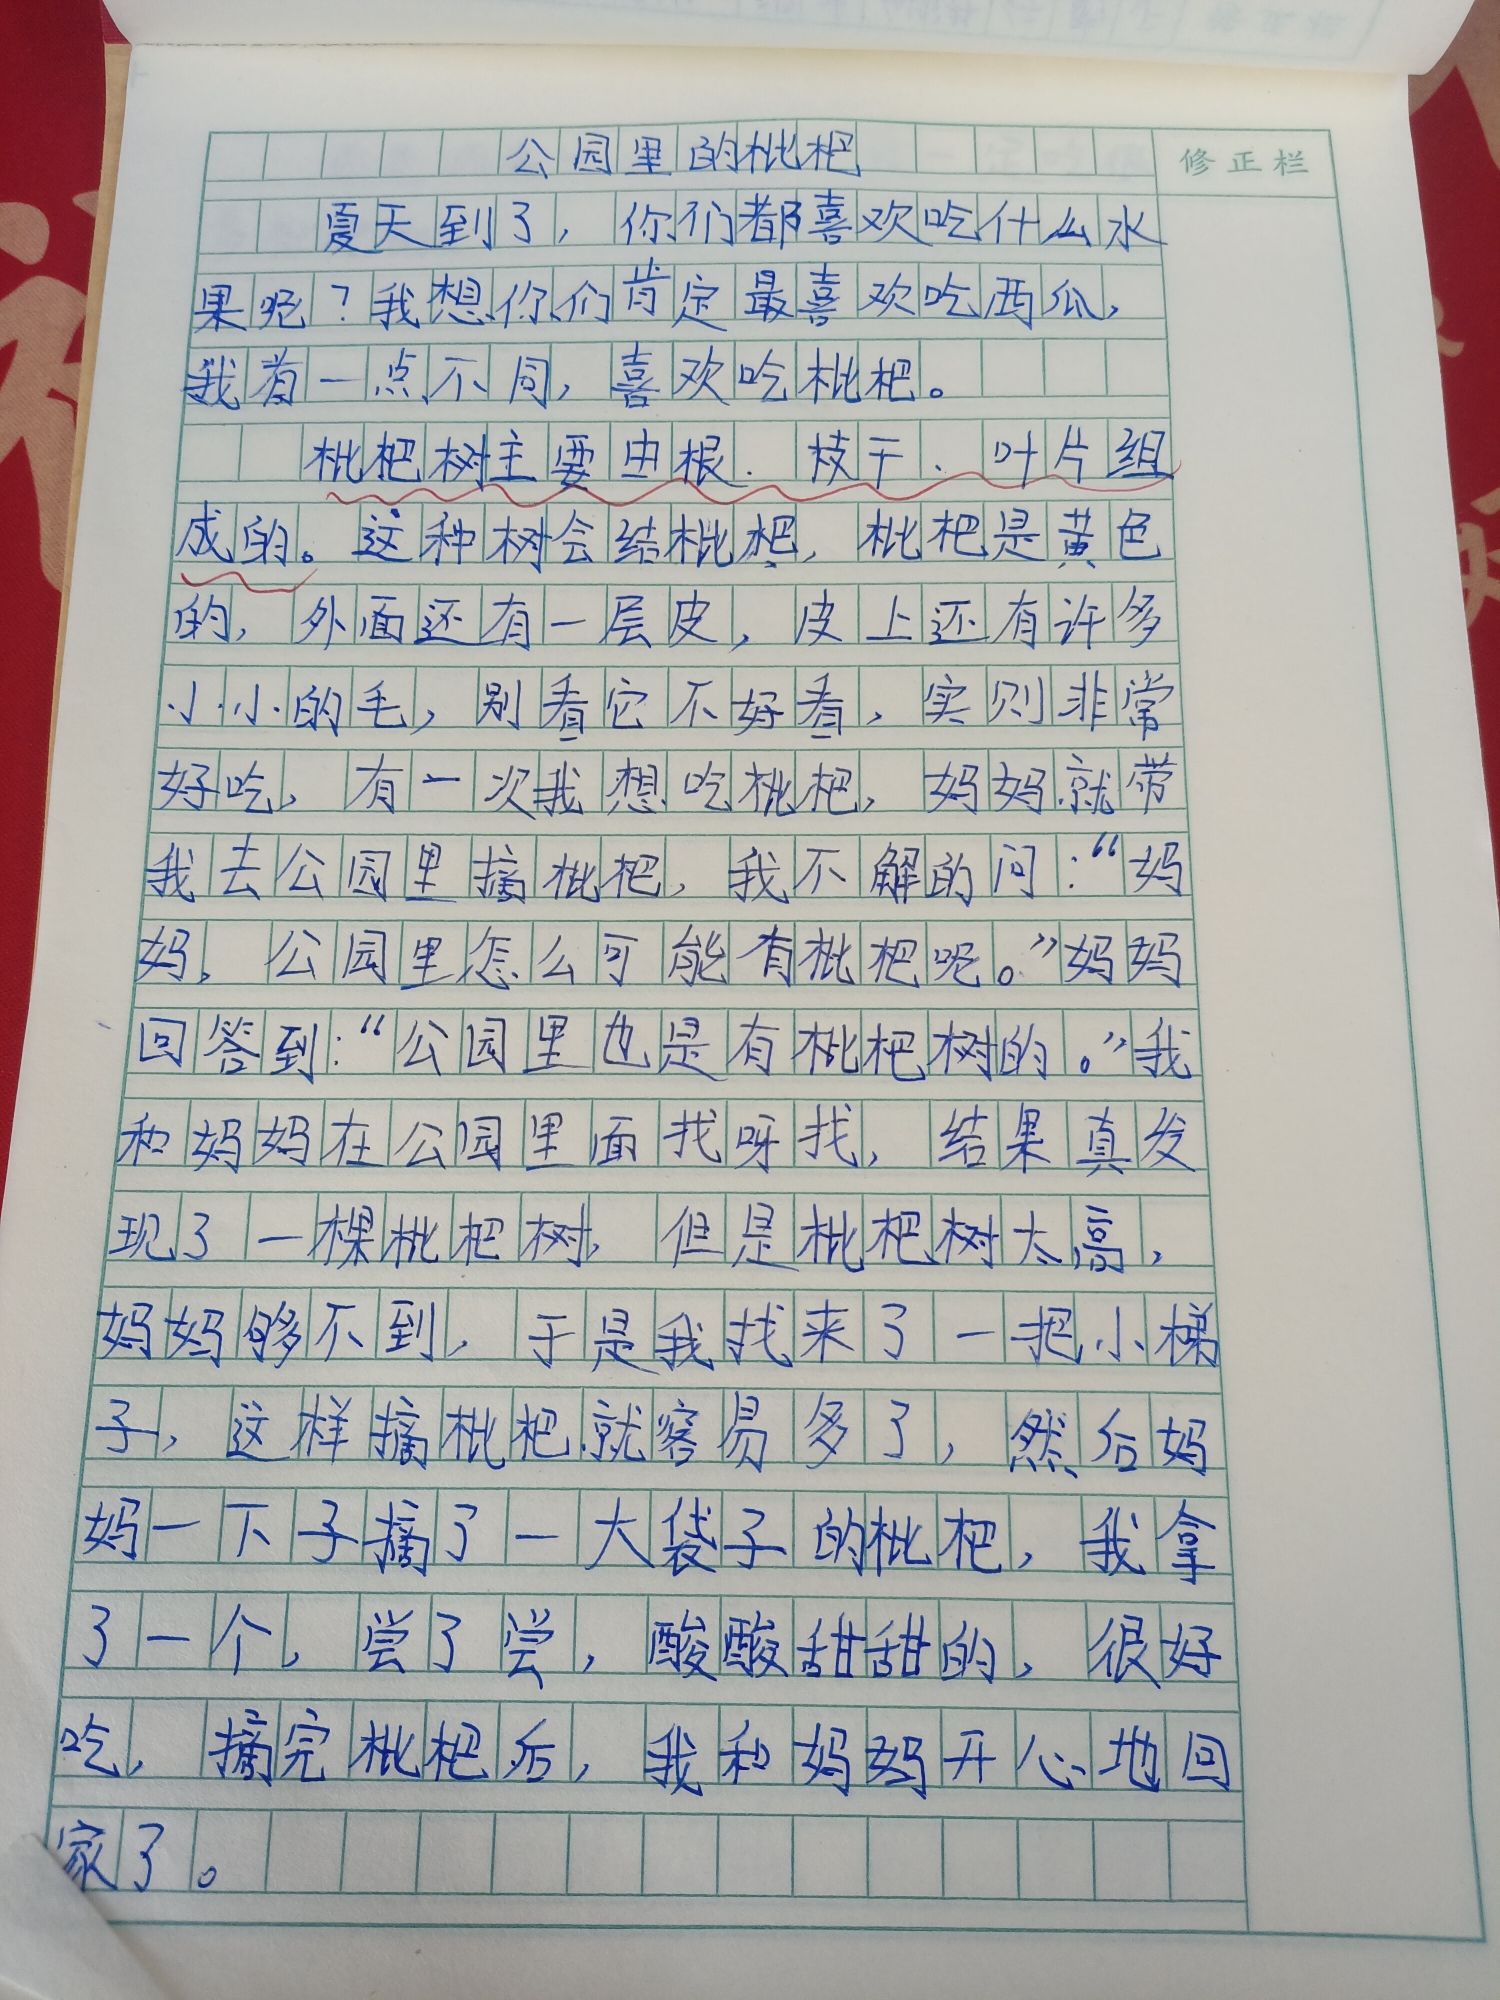 公园里的枇杷
修正栏
夏天到了，你们都喜欢吃什么水
果呢？我想你们肯定最喜欢吃西瓜，
我有一点不同，喜欢吃枇杷。
枇杷树主要由根、枝干、叶片组
成的。这种树会结枇杷，枇杷是黄色
的，外面还有一层皮，皮上还有许多
小小的毛，别看它不好看，实则非常
好吃，有一次我想吃枇杷，妈妈就带
我去公园里摘枇杷，我不解的问：“妈
妈，公园里怎么可能有枇杷呢。”妈妈
回答到：“公园里也是有枇杷树的。”我
和妈妈在公园里面找呀找，结果真发
现了一棵枇杷树，但是枇杷树太高，
妈妈够不到，于是我找来了一把小梯
子，这样摘枇杷就容易多了，然后妈
妈一下子摘了一大袋子的枇杷，我拿
了一个，尝了尝，酸酸甜甜的，很好
吃，摘完枇杷后，我和妈妈开心地回
家了。